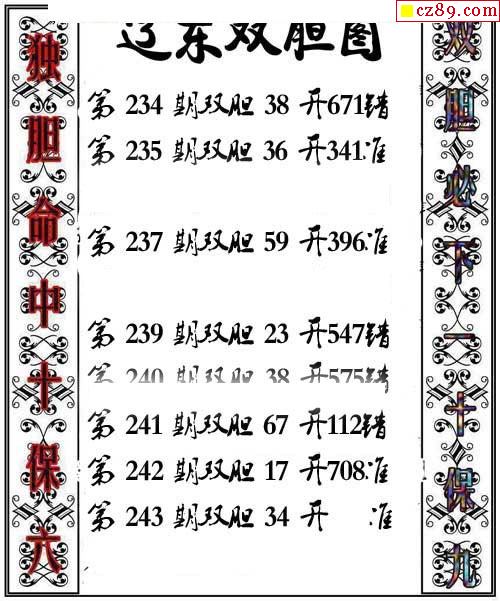 cz89.com
辽东双胆图
独胆命中十保六
双胆必下一十保九
第 234 期双胆 38 开671错
第 235 期双胆 36 开341准
第 237 期双胆 59 开396准
第 239 期双胆 23 开547错
第 240 期双胆 38 开575错
第 241 期双胆 67 开112错
第 242 期双胆 17 开708准
第 243 期双胆 34 开 准